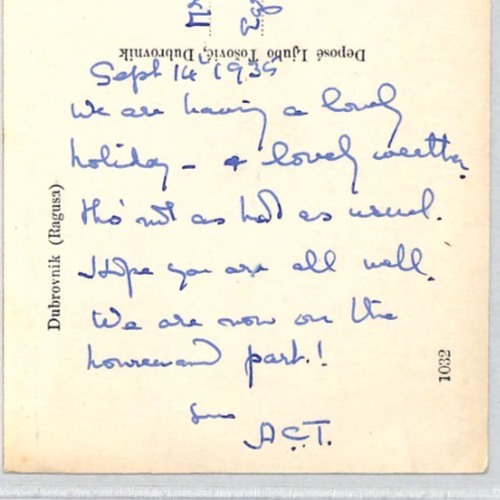 Deposé Ljubo Tošović, Dubrovnik
Sept 14 1935
We are having a lovely
holiday - & lovely weather,
tho' not as hot as usual.
Hope you are all well.
We are now on the
homeward part.!
A.C.T.
Dubrovnik (Ragusa)
1032